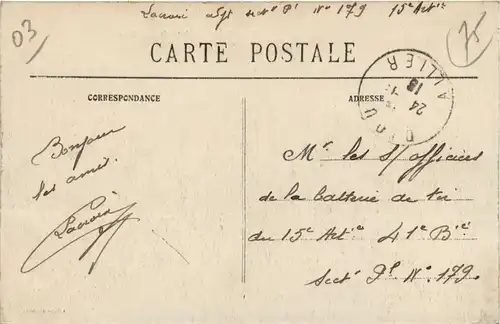 03
Lacroix aSgt sect r Pl No 179 15e Artie
75
CARTE POSTALE
CORRESPONDANCE
ADRESSE
ALLIER
24
Bonjour
les amis.
Lacroix
Mr les S/officiers
de la batterie de tir
du 15e Artie 41e Bie
Sectr Pl No 179.